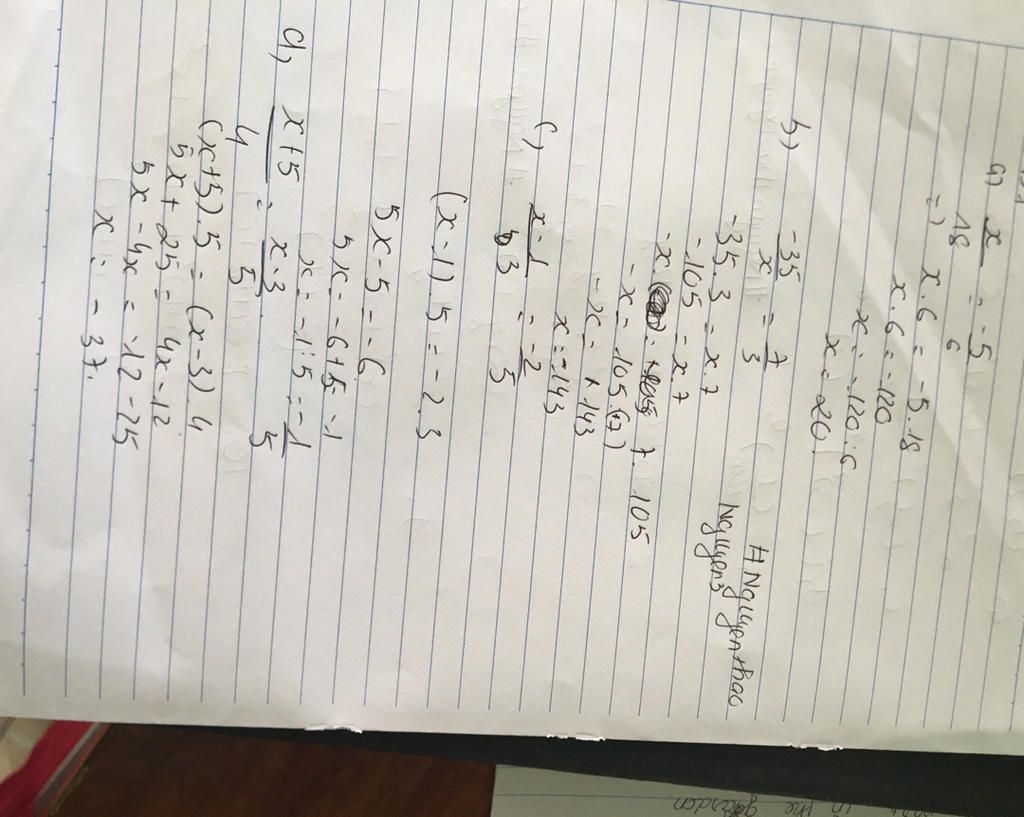 a) x/18 = -5/6
=) x.6 = -5.18
x.6 = -120
x = -120:6
x = -20.
b) -35/x = 7/3
-35.3 = x.7
-105 = x.7
-x. = 7.105
-x = -105
-x = 143
x = -143
HNguyen thao
Nguyen3
c) x-1/3 = -2/5
(x-1).5 = -2.3
5x-5 = -6
5x = -6+5 = -1
x = -1:5 = -1/5
d, x+5/4 = x-3/5.
(x+5).5 = (x-3).4
5x+25 = 4x-12
5x-4x = -12-25
x = -37.
in the garden